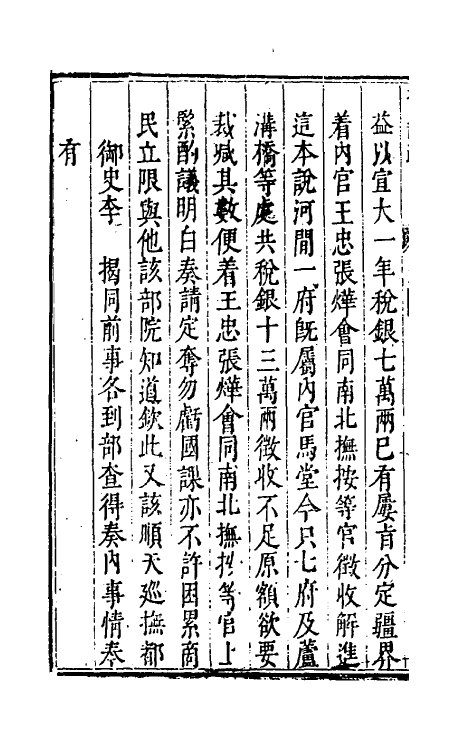 益以宣大一年稅銀七萬兩已有屢旨分定疆界
着內官王忠張燁會同南北撫按等官徵收解進
這本說河間一府既屬內官馬堂今只七府及蘆
溝橋等處共稅銀十三萬兩徵收不足原額欲要
裁减其數便着王忠張燁會同南北撫按等官上
緊酌議明白奏請定奪勿虧國課亦不許困累商
民立限與他該部院知道欽此又該順天廵撫都
御史李　揭同前事各到部查得奏內事情奉
有